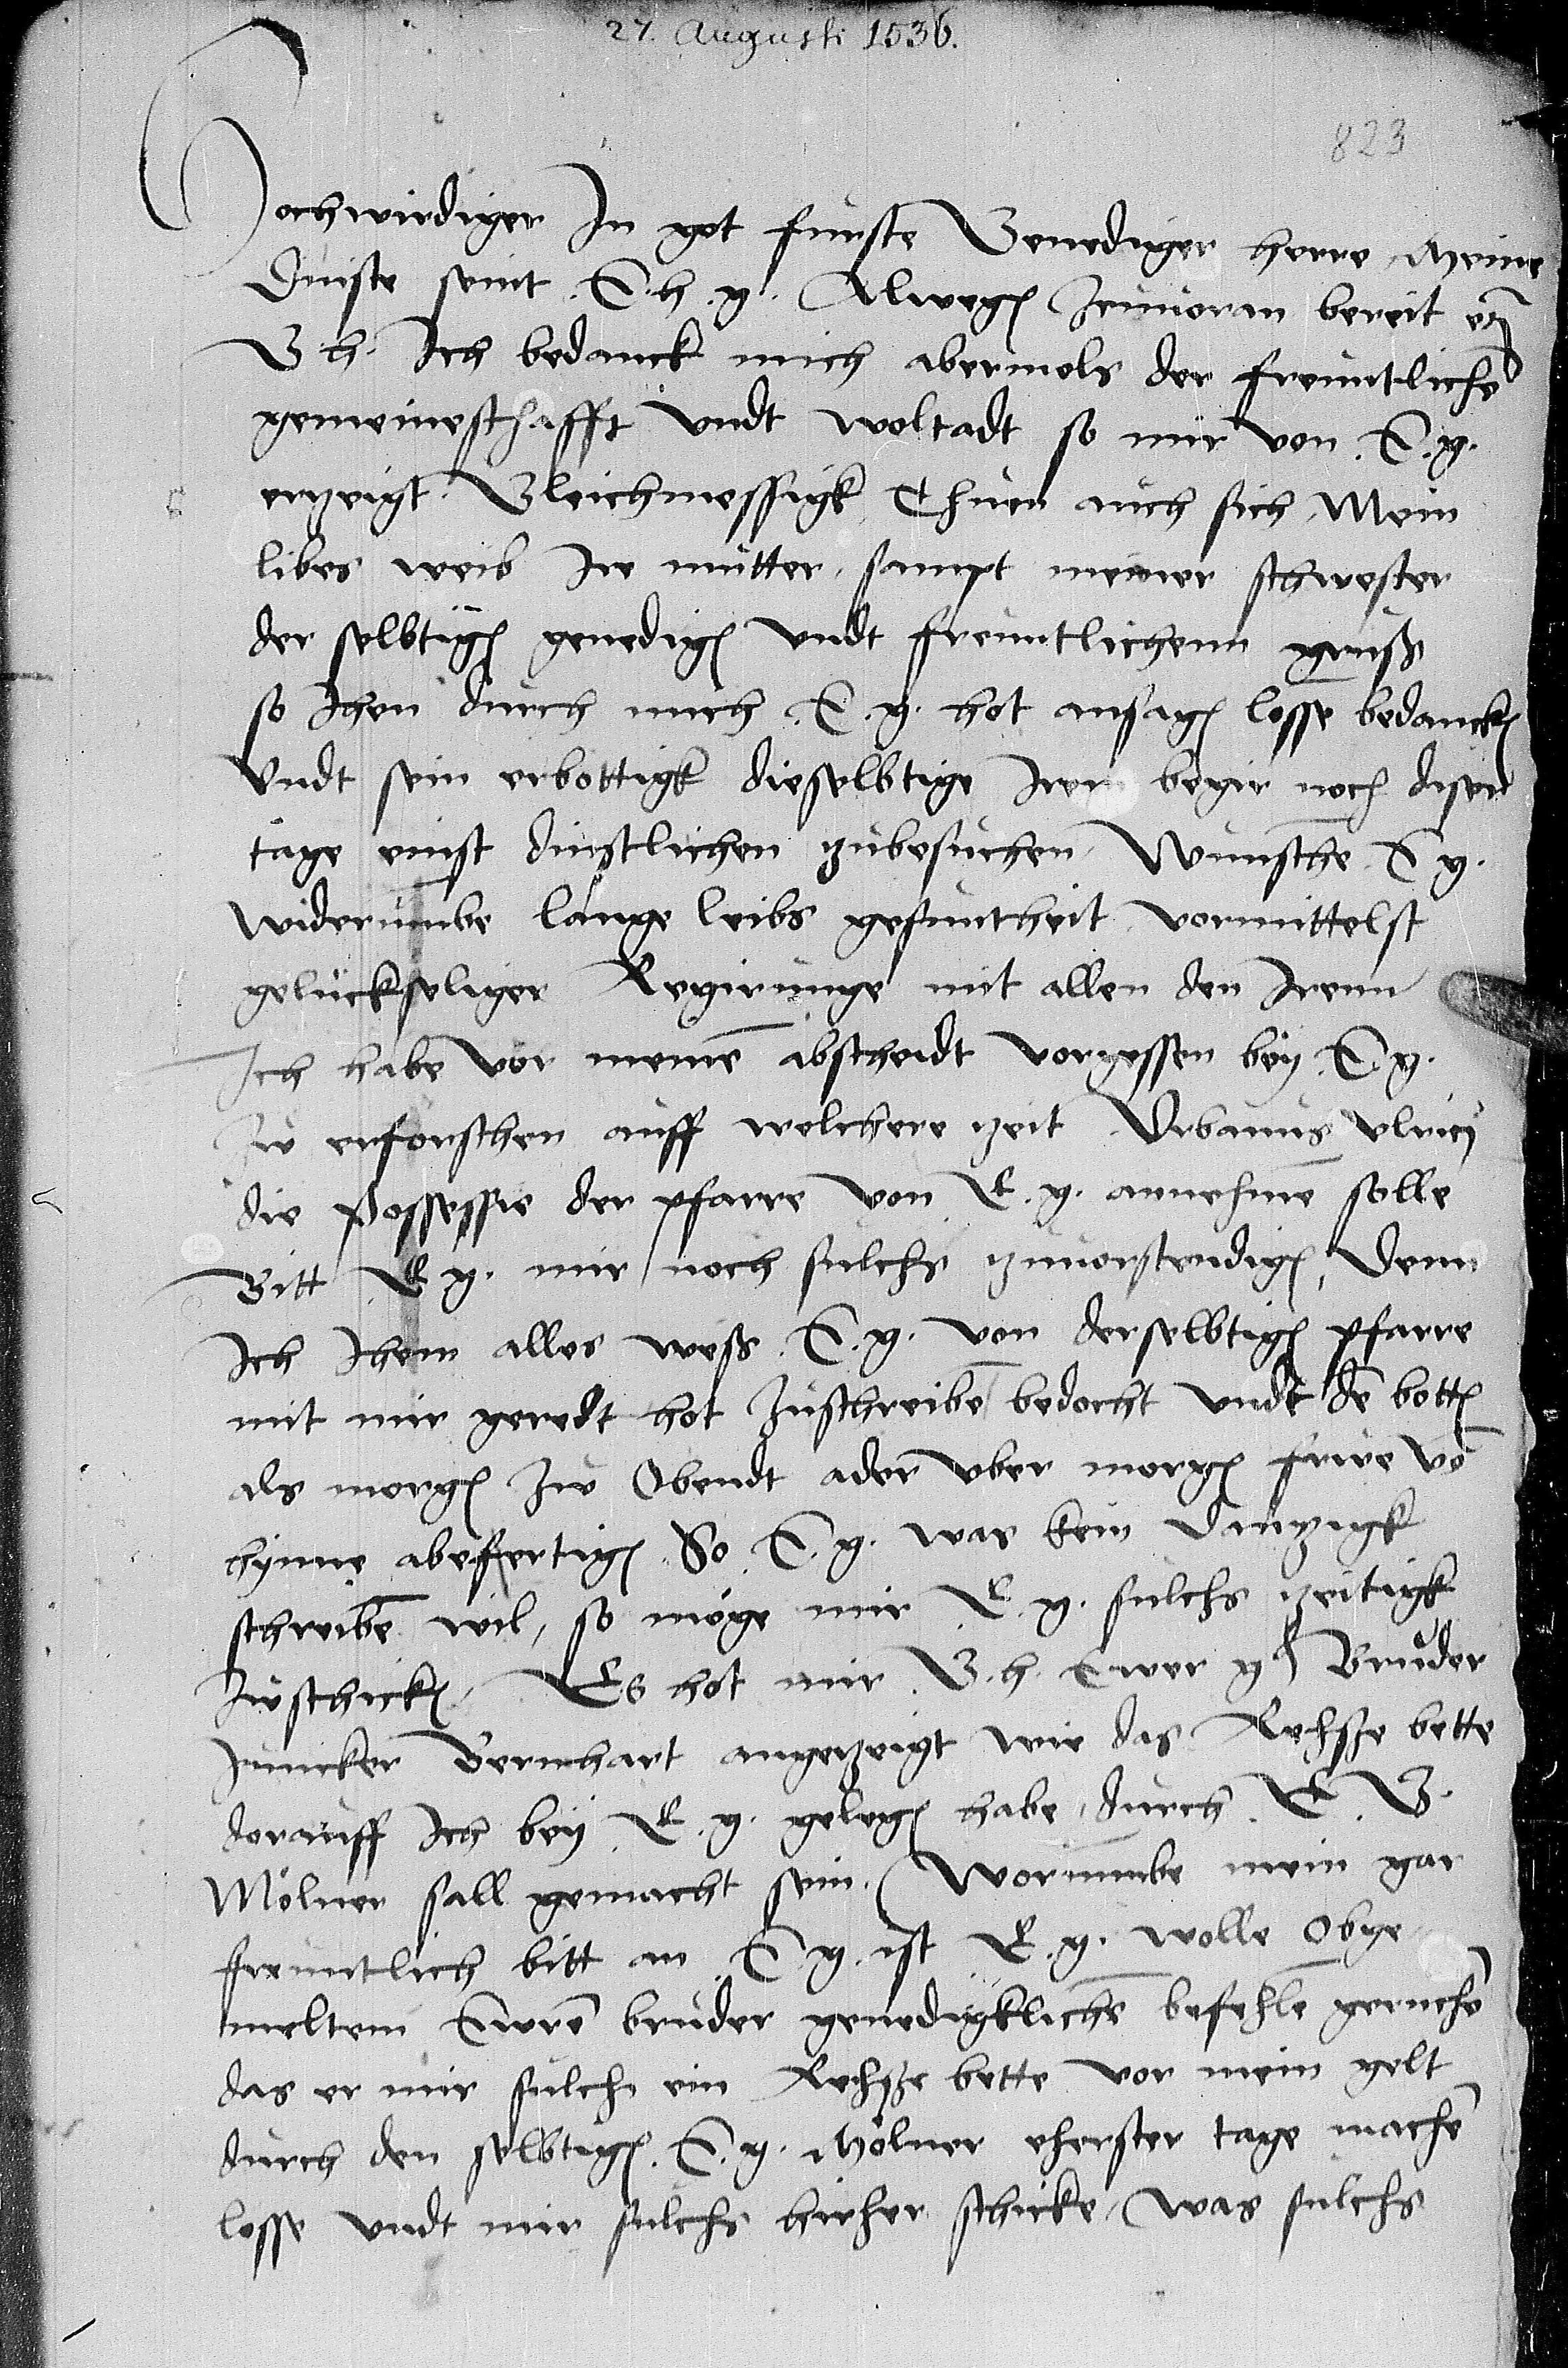 27. Augusti 1536.
823
Hochwirdiger In got furste Genediger herre Meine
Dinste seint E. h. g. Alwegen zuuoran bereit
G h. Ich bedanck mich abermols der freuntlichen
gemeineschafft vndt woltadt so mir von E. g.
erzeigt. Gleichmessigk Thuen auch sich Mein
libes weib Ire mutter sampt meiner schwester
der selbtigen genedigen vndt freuntlichenn grus
so Ihen durch mich E. g. hot ansagen losse bedancken
Vndt sein erbottigk dieselbtige Irem begir noch diser
tage einst dinstlichen zubesuchen Wunsche E g.
widerumbe lange leibs gesuntheit vormittelst
geluckseliger Regirunge mit allen den Irenn
Ich habe vor meinē abscheidt vorgessen bey E. g.
zw erforschen auff welchere zeit Vrbanus vlrici
die Possessie der pfarre von E. g. annehmē solle
Bitt E g. mir noch sulchs zuuorstendigen, Denn
Ich Ihem alles weß E. g. von derselbtigen pfarre
mit mir geredt hot zuschreibē bedocht vndt dē botten
als morgen zw Obendt ader vber morgen frwe vō
hynne abefertigen So E. g. was kein Dantzigk
schreibē wil, so möge mir E. g. sulchs zeitigk
zuschicken. Es hot mir G. h. Ewer g. Bruder
Juncker Bernhart angezeigt wie das Rehsze bette
dorauff Ich bey E. g. gelegen habe, durch E. G.
Mölner sall gemacht sein. Worumbe mein gar
freuntlich bitt an E g. ist E. g. wolle Obge
meltem Ewrē bruder genedigklichē befehlē geruchē
das er mir sulch ein Rehsze bette vor mein gelt
durch den selbtigen E. g. Mölner eherster tage machē
losse vndt mir sulchs hirher schicke, Was sulchs